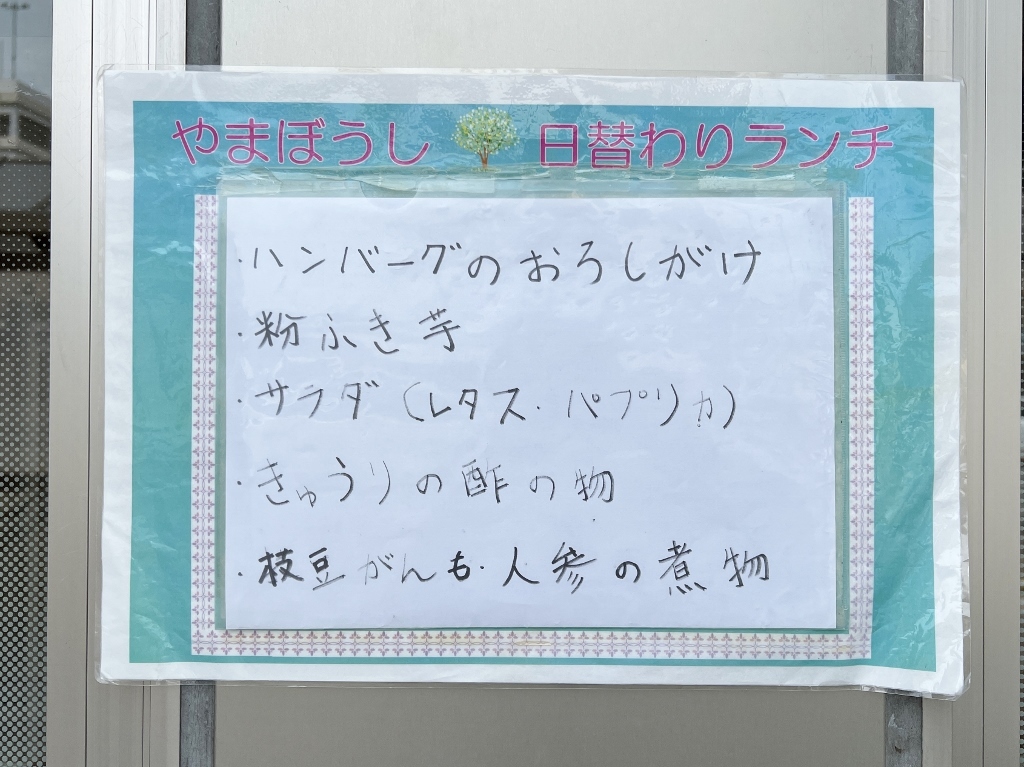 やまぼうし 日替わりランチ
・ハンバーグのおろしがけ
・粉ふき芋
・サラダ（レタス・パプリカ）
・きゅうりの酢の物
・枝豆がんも・人参の煮物